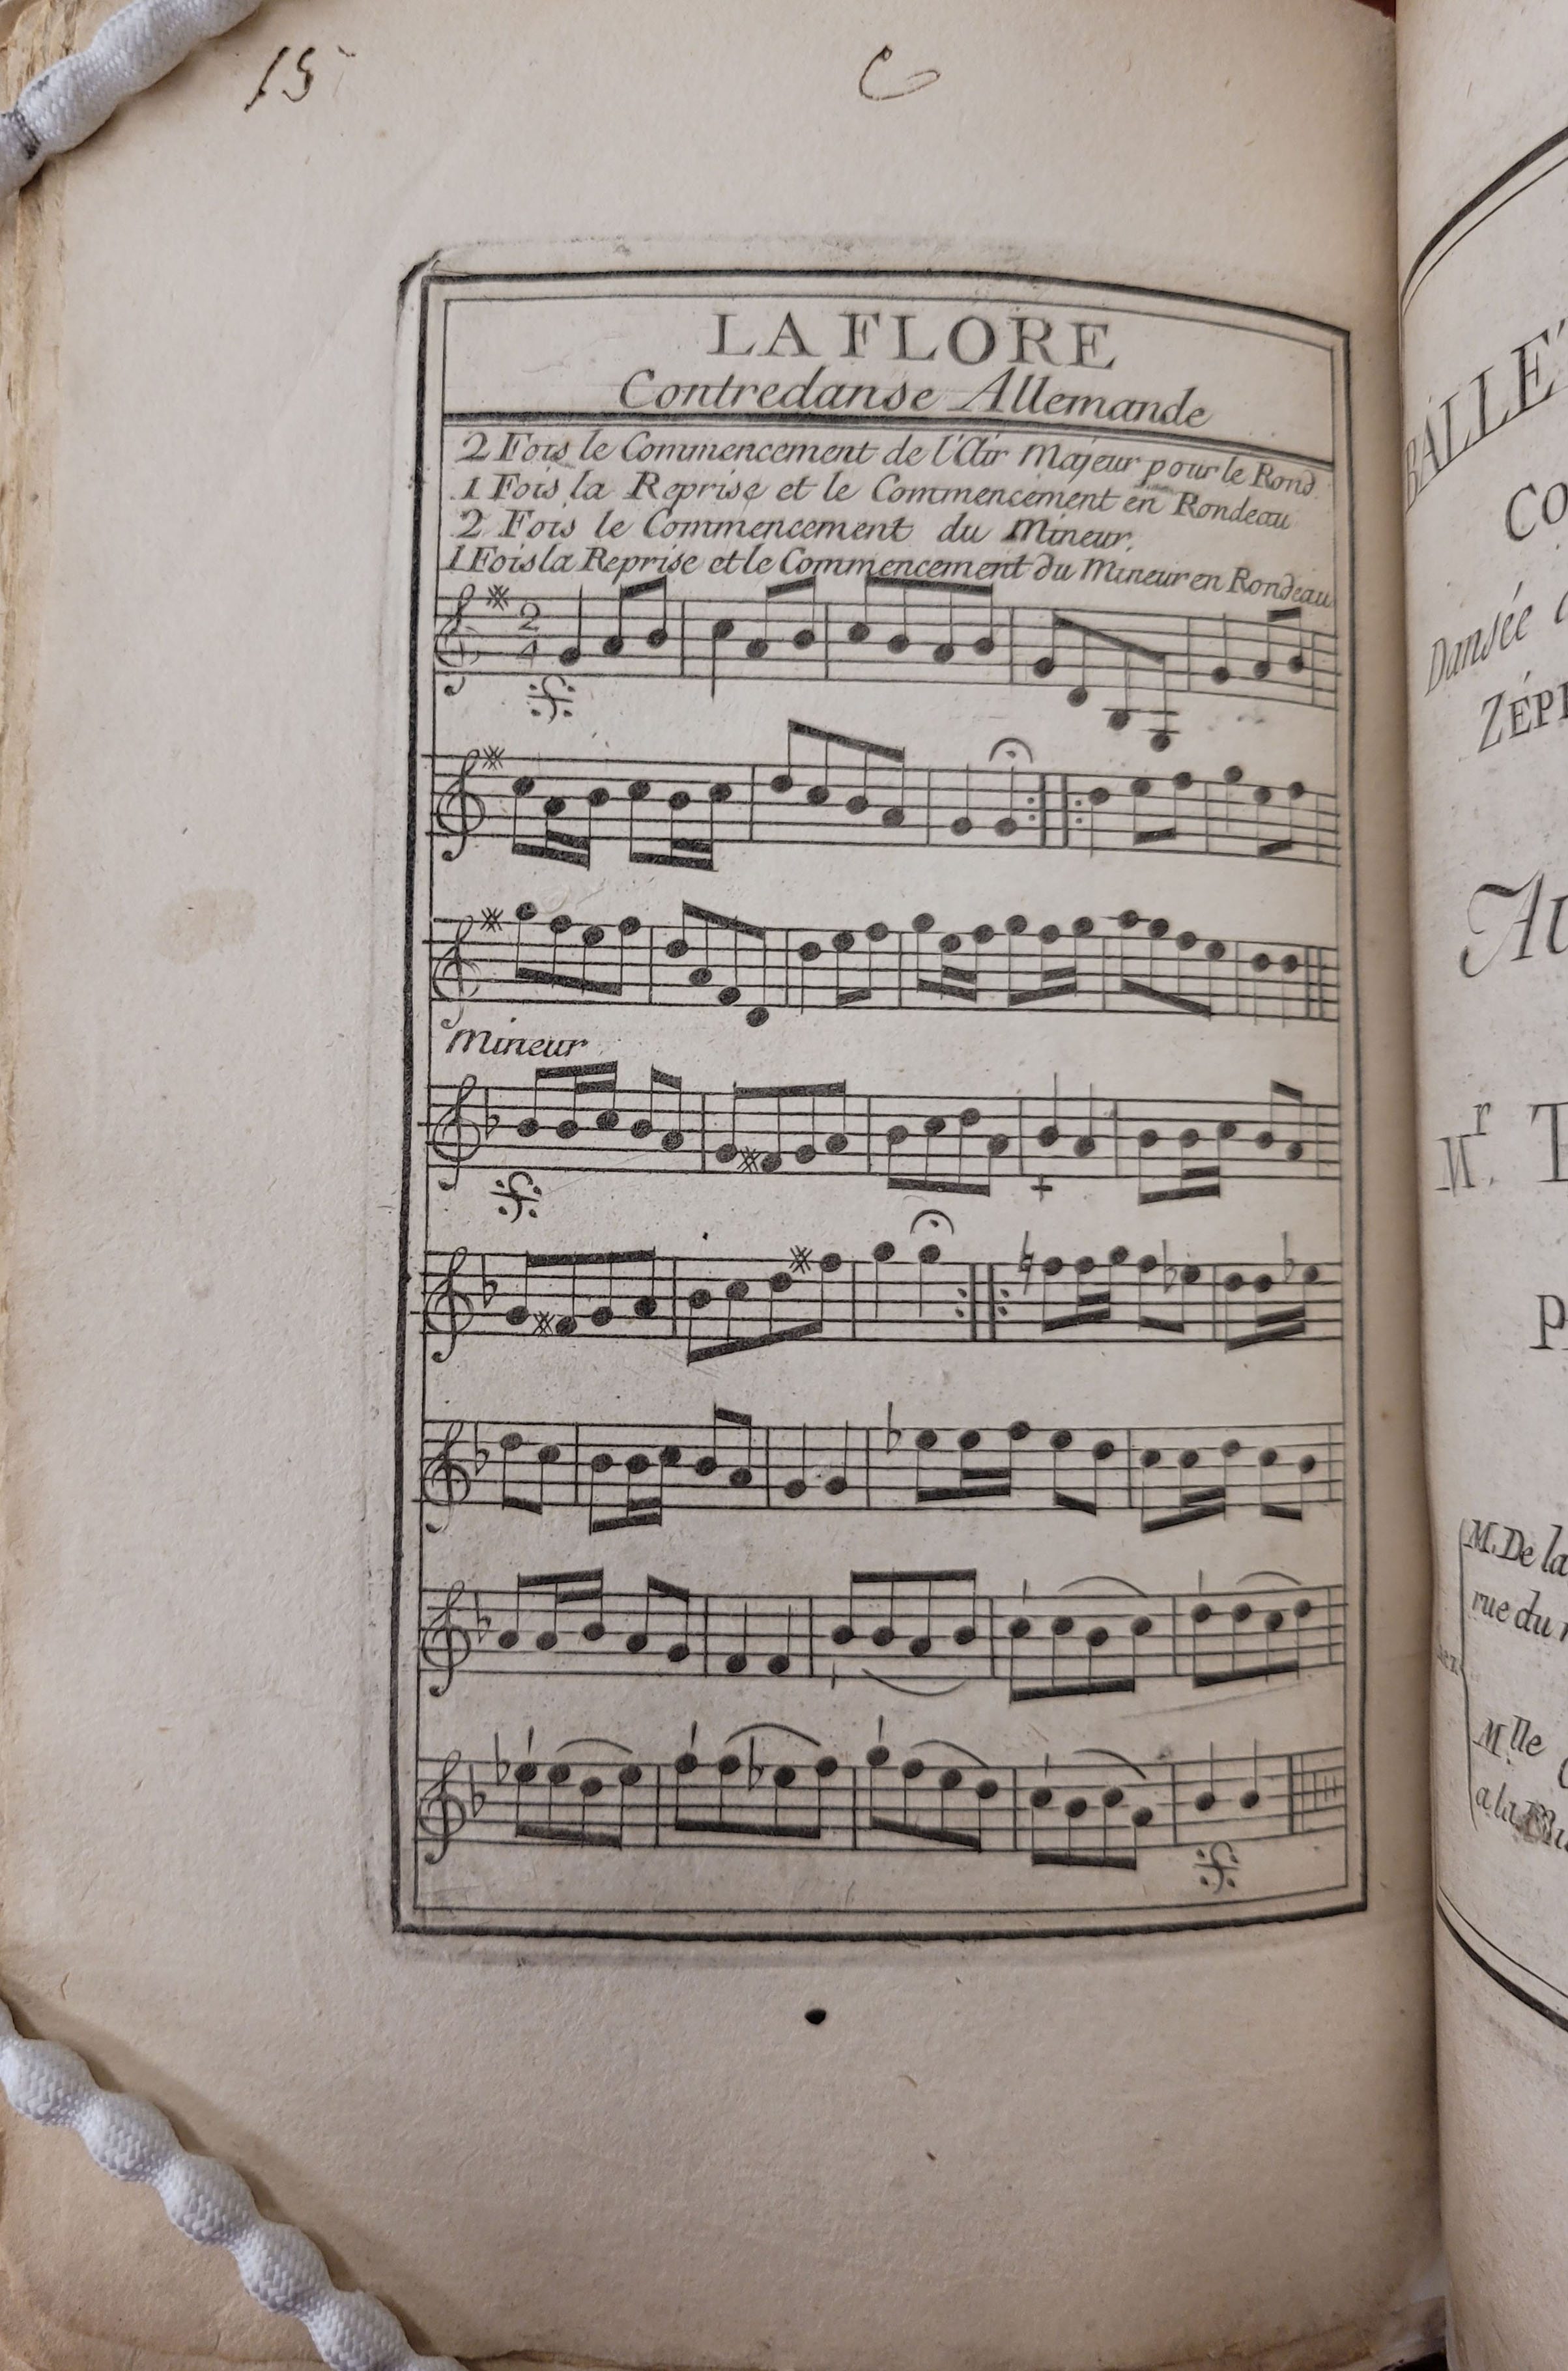 15
LA FLORE
Contredanse Allemande
2 Fois le Commencement de l'Air Majeur pour le Rond
1 Fois la Reprise et le Commencement en Rondeau
2 Fois le Commencement du Mineur.
1 Fois la Reprise et le Commencement du Mineur en Rondeau
2
4
Mineur
BALLE
CO
Dansée
ZÉP
Au
Mr
M. De la
rue du
Mlle
a la